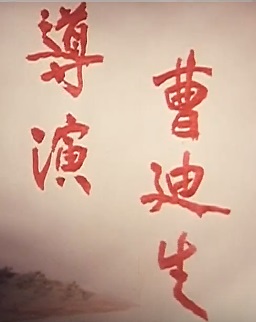 導演
曹迪生